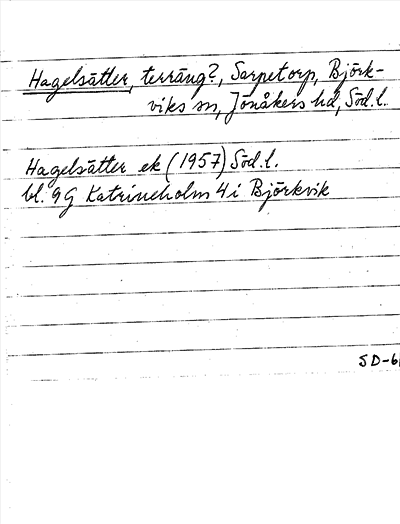 Hagelsätter, terräng?, Sarpetorp, Björk-
viks sn, Jönåkers hd, Söd.l.
Hagelsätter ek (1957) Söd.l.
bl. 9G Katrineholm 4i Björkvik
SD-61